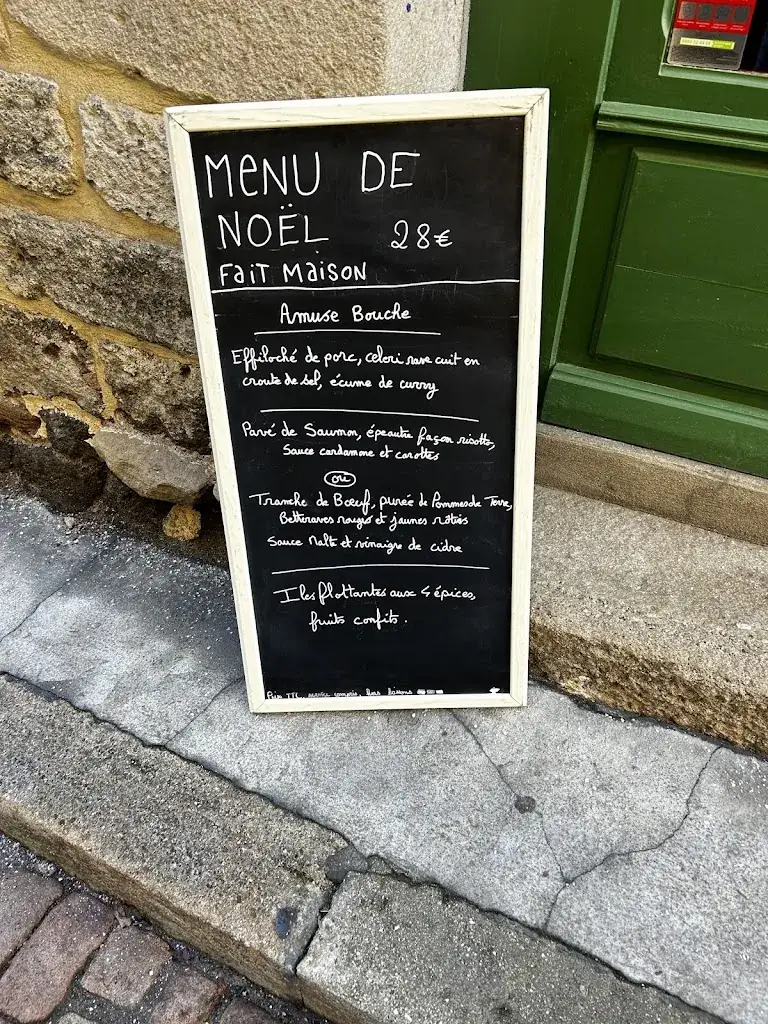 MENU DE
NOËL 28€
FAIT MAISON
Amuse Bouche
Effiloché de porc, celeri rave cuit en
croute de sel, écume de curry
Pavé de Saumon, épeautre façon risotto,
Sauce cardamome et carottes
ou
Tranche de Bœuf, purée de Pommes de Terre,
Betteraves rouges et jaunes rôties
Sauce Malt et vinaigre de cidre
Iles flottantes aux 4 épices,
fruits confits.
Prix TTC, service compris, hors boissons